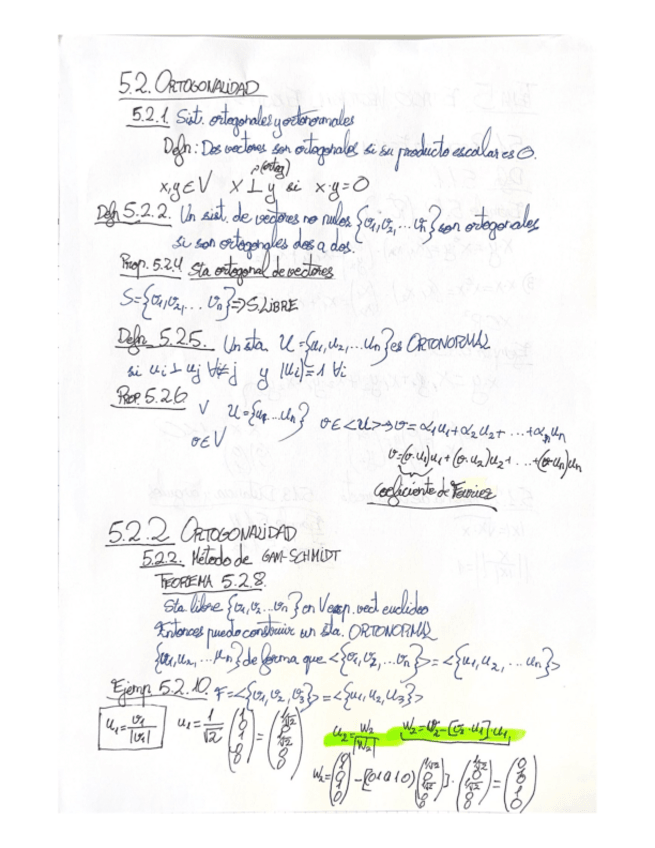 5.2. ORTOGONALIDAD
5.2.1 Sist. ortogonales y ortonormales
Defn: Dos vectores son ortogonales si su producto escalar es 0.
x,y ∈ V x ⊥ y si x·y = 0
Defn 5.2.2. Un sist. de vectores no nulos {v1, v2, ... vn} son ortogonales
si son ortogonales dos a dos.
Prop. 5.2.4 Sta ortogonal de vectores
S={v1, v2, ... vn} ⇒ S LIBRE
Defn 5.2.5. Un sta. U={u1, u2, ... un} es ORTONORMAL
si ui ⊥ uj ∀i≠j y |ui|=1 ∀i
PROP. 5.2.6. V U={u1 ... un} v ∈ <U> → v = α1u1 + α2u2 + ... + αnun
v ∈ V
v=(v·u1)u1 + (v·u2)u2 + ... + (v·un)un
Coeficiente de Fourier
5.2.2 ORTOGONALIDAD
5.2.2. Método de GAM-SCHMIDT
TEOREMA 5.2.8.
Sta libre {v1, v2 ... vn} en V esp. vect euclideo
Entonces puedo construir un sta. ORTONORMAL
{u1, u2, ... un} de forma que <{v1, v2, ... vn}> = <{u1, u2, ... un}>
Ejemp. 5.2.10. F=<{v1, v2, v3}> = <{u1, u2, u3}>
u1 = v1/|v1| u1 = 1/√2 (1 0 1 0) = (1/√2 0 1/√2 0) u2 = w2/|w2| w2 = v2 - [v2 · u1] · u1